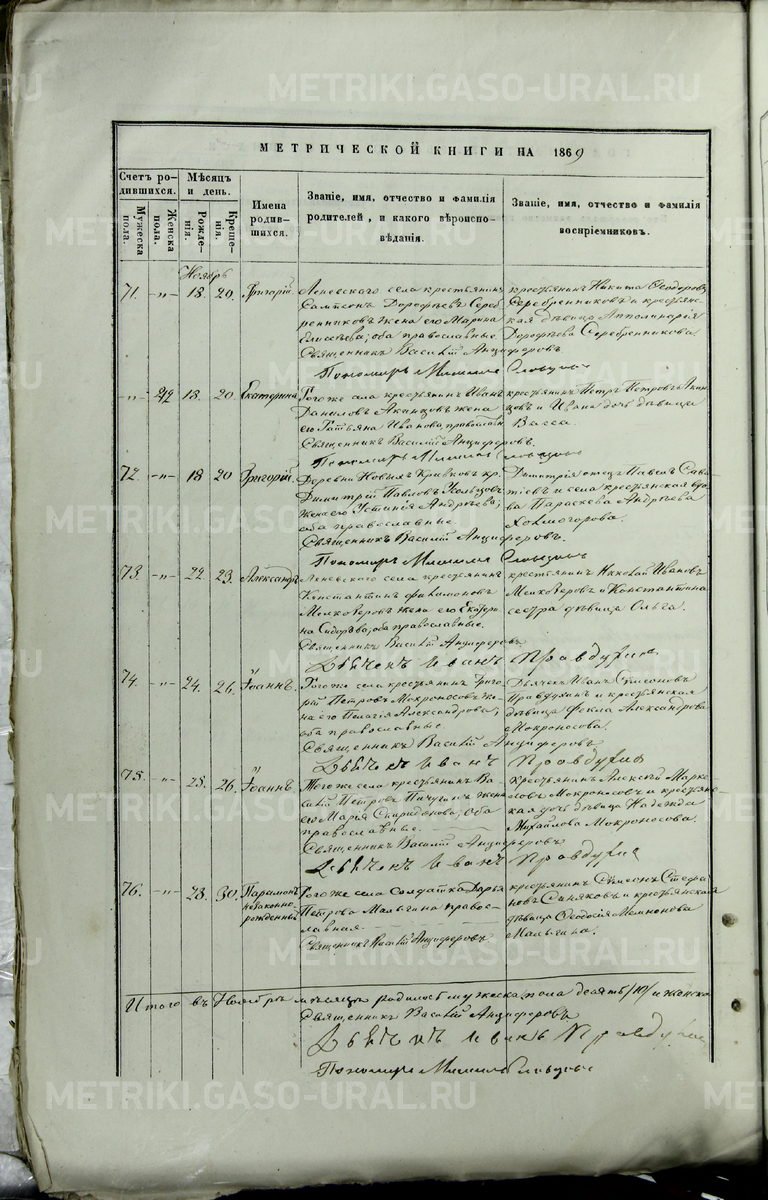 МЕТРИЧЕСКОЙ КНИГИ НА 1869
Счетъ ро-
дившихся.
Мужеска
пола.
Женска
пола.
Мѣсяцъ
и день.
Рожде-
нія.
Креще-
нія.
Имена
родив-
шихся.
Званіе, имя, отчество и фамилія
родителей, и какого вѣроиспо-
вѣданія.
Званіе, имя, отчество и фамилія
воспріемниковъ.
Ноябрь
71. -"- 18. 20. Григорій.
Леневскаго села крестьянинъ
Сампсонъ Дорофѣевъ Сереб-
ренниковъ жена его Марина
Елисеева; оба православные
Священникъ Василій Анциферовъ
крестьянинъ Никита Ѳеодоровъ
Серебренниковъ и крестьян-
ская дѣвица Апполинарія
Дорофѣева Серебренникова.
18. 20. Екатерина
Того же села крестьянинъ Иванъ
Даниловъ жена
его Татьяна Иванова, православн
Священникъ Василій Анциферовъ.
крестьянинъ Петръ Петровъ
и Ивана дочь дѣвица
Васса.
72. -"- 18 20 Григорій.
Деревни Новыхъ Кривковъ кр.
Димитрій Павловъ Усольцовъ
жена его Устинія Андрѣева;
оба православные.
Священникъ Василій Анциферовъ.
Димитрія отецъ Павелъ
и села крестьянская
Параскева Андрѣева
Холмогорова.
73. -"- 22. 23. Александръ
Леневскаго села крестьянинъ
Константинъ Филимоновъ
Мелкозеровъ жена его Екатери-
на Сидорова, оба православные.
Священникъ Василій Анциферовъ
крестьянинъ Николай Ивановъ
Мелкозеровъ и Константина
сестра дѣвица Ольга.
Дьячекъ Иванъ Правдухинъ
74. -"- 24. 26. Іоаннъ.
Того же села крестьянинъ Григо-
рій Петровъ Мокроносовъ же-
на его Пелагія Александрова;
оба православные
Священникъ Василій Анциферовъ
Дьячекъ Иванъ Симеоновъ
Правдухинъ и крестьянская
дѣвица Ѳекла Александрова
Мокроносова.
Дьячекъ Иванъ Правдухинъ
75. -"- 25. 26. Іоаннъ
Того же села крестьянинъ Ва-
силій Петровъ Пичугинъ жена
его Марія Спиридонова; оба
православные.
Священникъ Василій Анциферовъ
крестьянинъ Алексѣй Марке-
ловъ Мокроносовъ и крестьянс-
кая дочь дѣвица Надежда
Михайлова Мокроносова.
Дьячекъ Иванъ Правдухинъ
76. -"- 28. 30. Парамонъ
незаконно-
рожденный
Того же села солдатка Дарья
Петрова Малыгина правос-
лавная
Священникъ Василій Анциферовъ
крестьянинъ Симеонъ Стефа-
новъ Синяковъ и крестьянская
дѣвица Ѳеодосія Мемнонова
Малыгина.
Итого въ Ноябрѣ мѣсяцѣ родилось мужеска пола десять /10/ и женска
Священникъ Василій Анциферовъ
Дьячекъ Иванъ Правдухинъ
METRIKI.GASO-URAL.RU